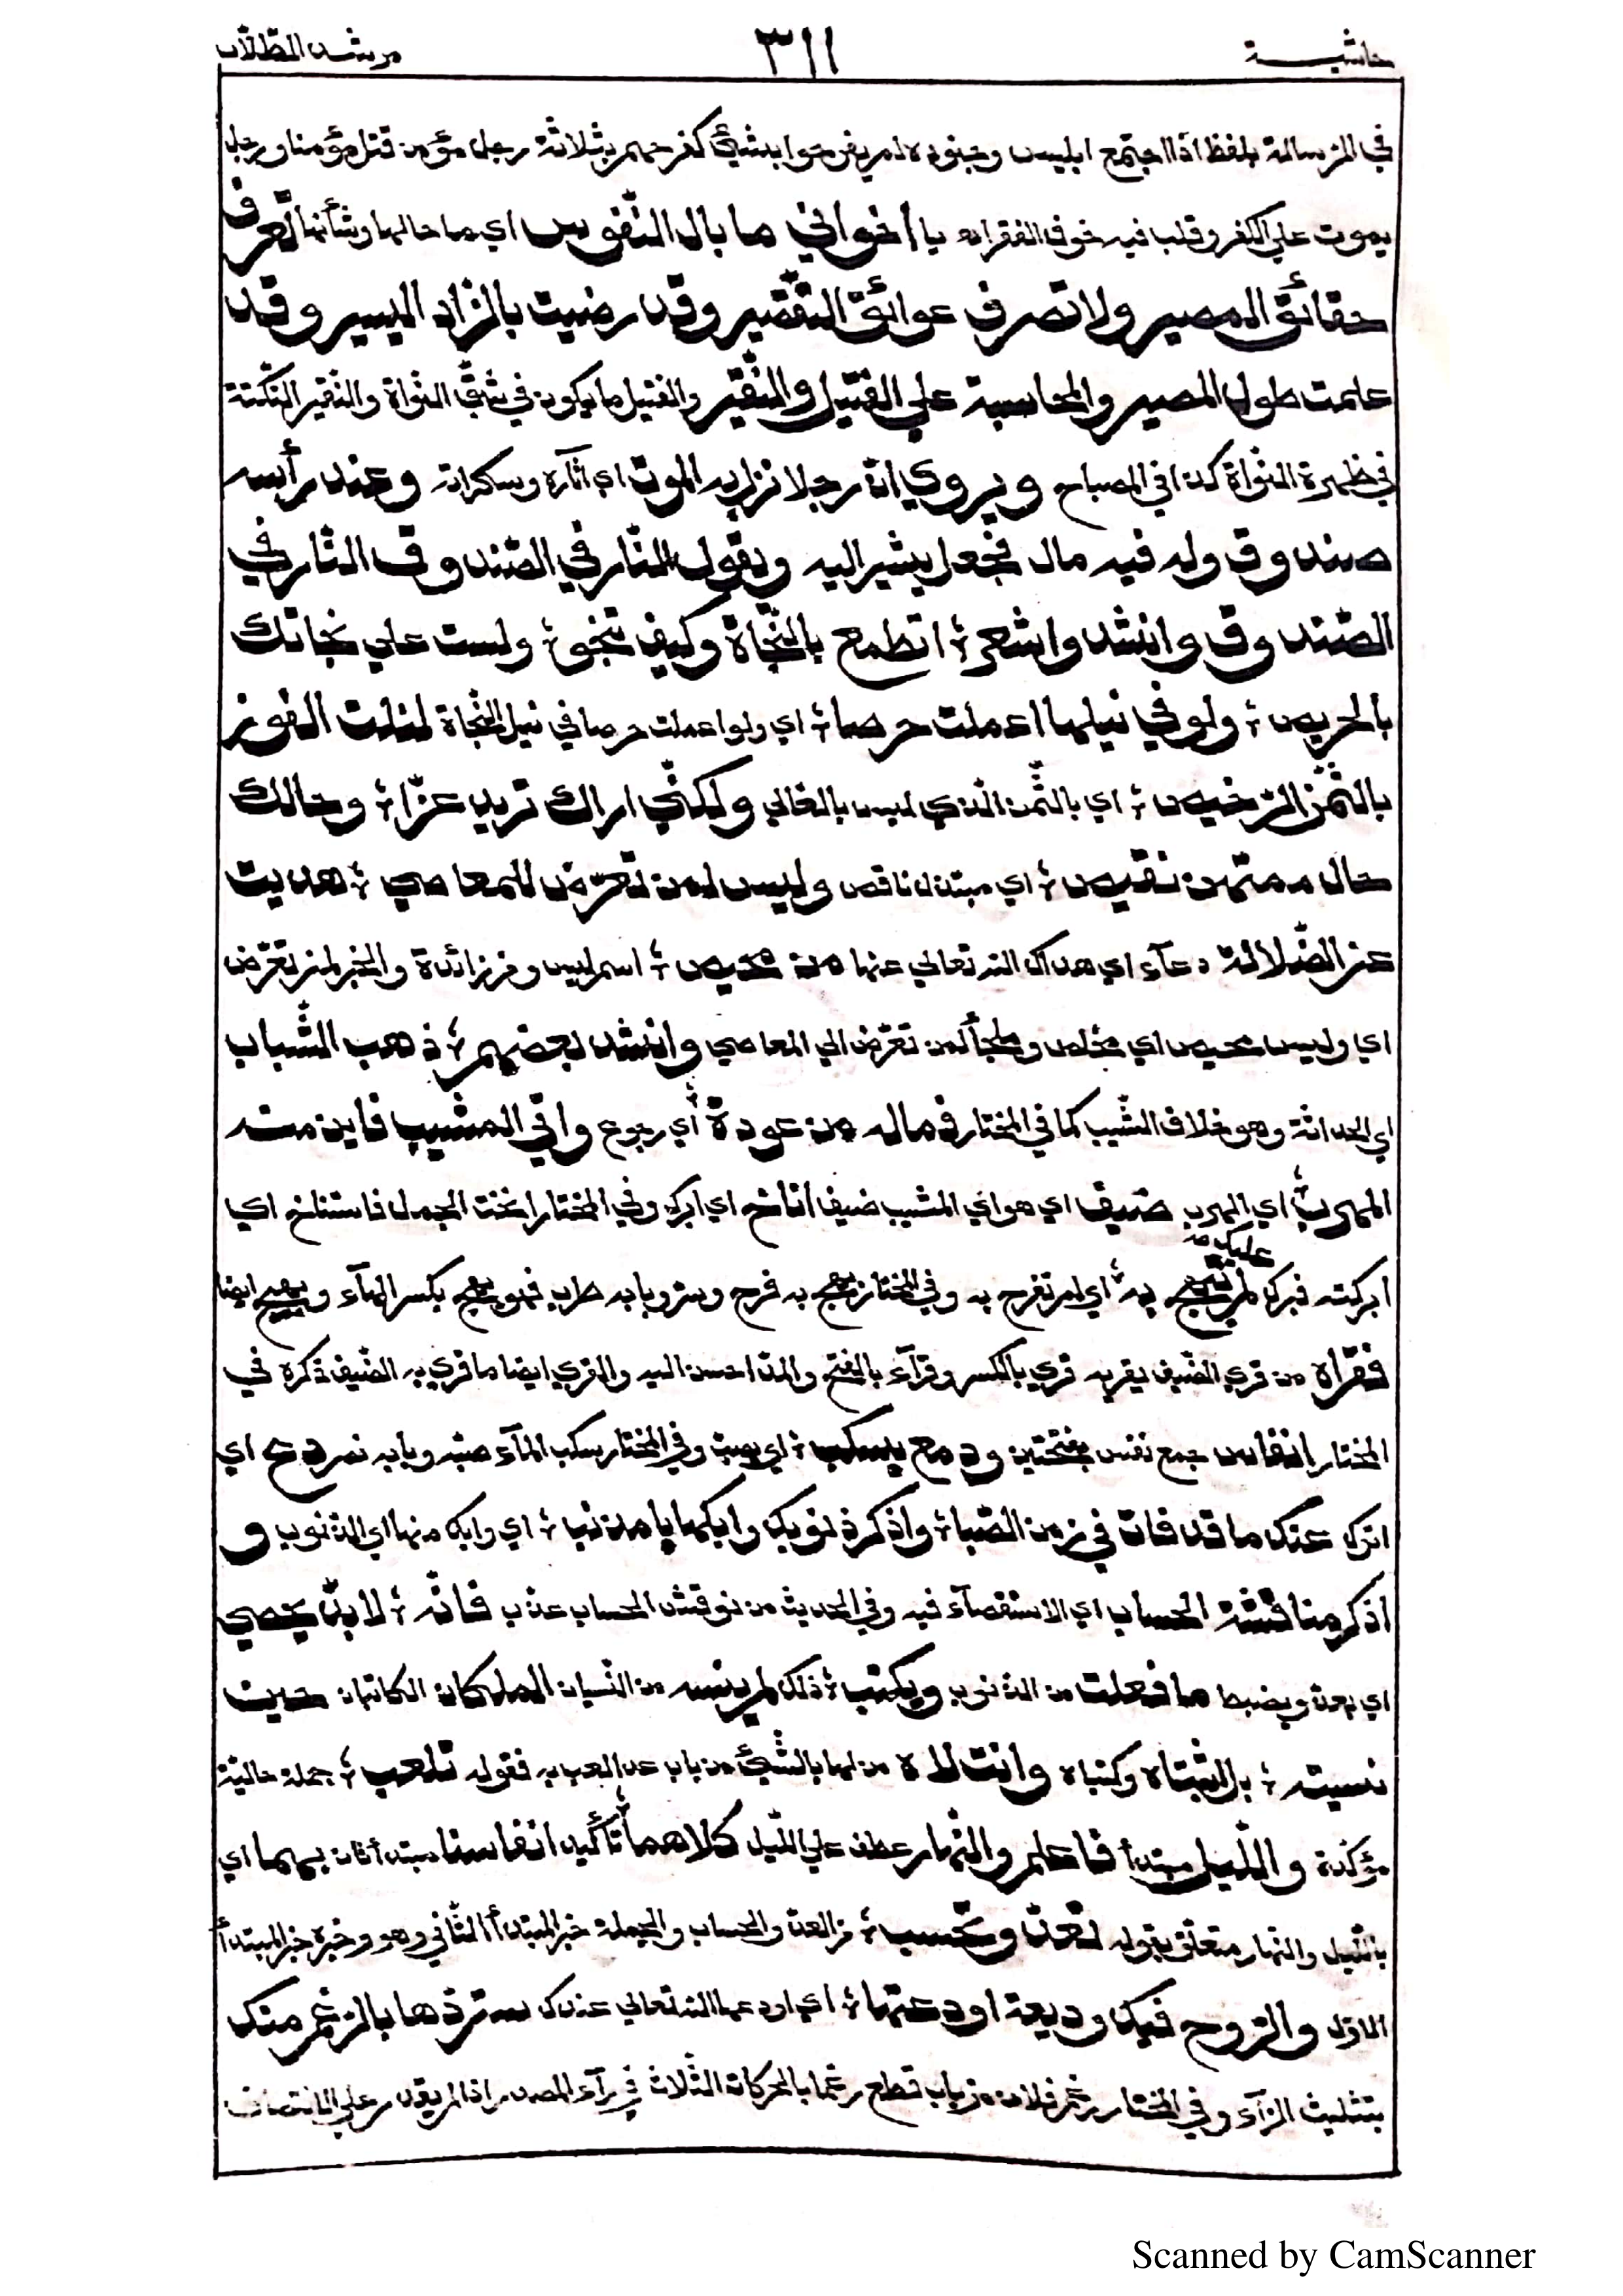 حاشية ٣١١ مرشد الطلاب
في الرسالة بلفظ اذا اجتمع ابليس وجنوده لم يفرحوا بشيئ كفرحهم بثلاثة رجل مؤمن قتل مؤمنا ورجل
يموت علي الكفر وقلب فيه خوف الفقر اه يا أخواني ما بال النّفوس اي ما حالها وشأنها تعرف
حقائق المصير ولا تصرف عوائق التّقصير وقد رضيت بالزّاد اليسير وقد
علمت طول المصير والمحاسبة علي الفتيل والنّقير والفتيل ما يكون في شقّ النّواة والنّقير النّكتة
في ظهرة النّواة كذا في المصباح ويروي انّ رجلا نزل به الموت اي آثاره وسكراته وعند رأسه
صندوق وله فيه مال فجعل يشير اليه ويقول النّار في الصّندوق النّار في
الصّندوق وانشدوا شعر ؛ اتطمع بالنّجاة وكيف تنجو ؛ ولست علي نجاتك
بالحريص ؛ ولو في نيلها اعملت حرصا ؛ اي ولو اعملت حرصا في نيل النّجاة لنلت الفوز
بالثّمن الرّخيص ؛ اي بالثّمن الّذي ليس بالغالي ولكنّي اراك تريد عزّا ؛ وحالك
حال ممتهن نقيص ؛ اي مبتذل ناقص وليس لمن تعرّض للمعاصي ؛ هديت
عن الضّلالة دعآء اي هداك الله تعالي عنها من محيص ؛ اسم ليس ومن زائدة والخبر لمن تعرّض
اي وليس محيص اي مخلص وملجأ لمن تعرّض الي المعاصي وانشد بعضهم ؛ ذهب الشّباب
اي الحداثة وهو خلاف الشّيب كما في المختار فماله من عودة ؛ أي رجوع واتي المشيب فاين منه
المهرب ؛ اي الهرب ضيف اي هو اي المشيب ضيف أناخ اي ابرك وفي المختار انخت الجمل فاستناخ اي
عليك مه
ابركته فبرك لم تبتهج به ؛ أي لم تفرح به وفي المختار بهج به فرح وسرّ وبابه طرب فهو بهج بكسر الهآء وبهيج ايضا
فقراه من قري الضّيف يقريه قري بالكسر وقرآء بالفتح والمدّ احسن اليه والقري ايضا ما قري به الضّيف ذكره في
المختار انفاس جمع نفس بفتحتين ودمع يسكب ؛ اي يصبّ وفي المختار سكب المآء صبّه وبابه نصر دع اي
اترك عنك ما قد فات في زمن الصّبا ؛ واذكر ذنوبك وابكها يا مذنب ؛ اي وابك منها اي الذّنوب و
اذكر مناقشة الحساب اي الاستقصآء فيه وفي الحديث من نوقش الحساب عذّب فانّه ؛ لا بدّ يحصي
اي يعدّ ويضبط ما فعلت من الذّنوب ويكتب ؛ ذلك لم ينسه من النّسيان الملكان الكاتبان حين
نسيته ؛ بل اثبتاه وكتباه وانت لاه من لها بالشّيئ من باب عدا لعب به فقوله تلعب ؛ جملة حالية
مؤكّدة واللّيل مبتدأ فاعلم والنّهار عطف علي اللّيل كلاهما ؛ تأكيد انفاسنا مبتدأ ثان بهما اي
باللّيل والنّهار متعلّق بقوله تعدّ وتحسب ؛ من العدّ والحساب والجملة خبر المبتدأ الثّاني وهو وخبره خبر المبتدأ
الاوّل والرّوح فيك وديعة اودعتها ؛ اي اودعها الله تعالي عندك ستردّها بالرّغم منك
بتثليث الرّآء وفي المختار رغم فلان من باب قطع رغما بالحركات الثّلاث في رآء المصدر اذا لم يقدر علي الانتصاف
Scanned by CamScanner